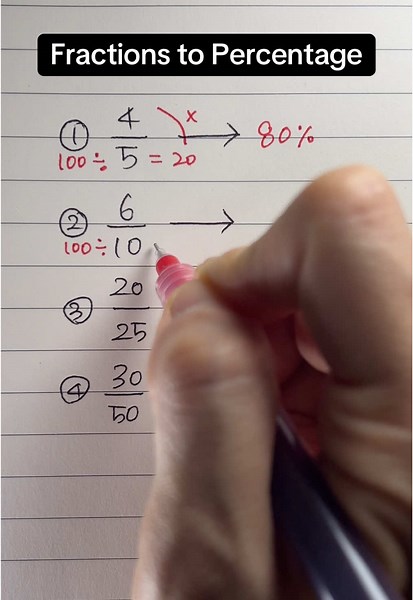 Fractions to Percentage
① 4/5 x → 80%
100÷ 5 = 20
② 6/10 →
100÷ 10
③ 20/25
④ 30/50